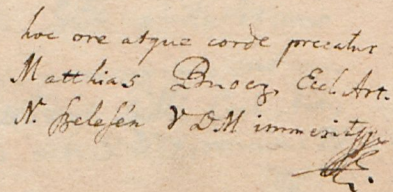 hoc ore atque corde precatur
Matthias Bnocz, Eccl. Art.
N. Belesén V D M immeritus